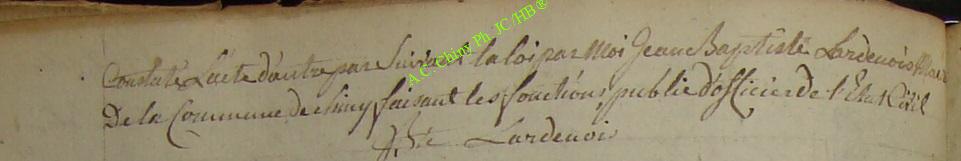 Constaté L'acte d'autre par Suivant la loi par Moi Jean Baptiste Lardenois Maire
De la Commune de chiny faisant les fonctions public d'officier de l'Etat Civil
J. Bte Lardenois
AC Chiny Ph JC/HB ®